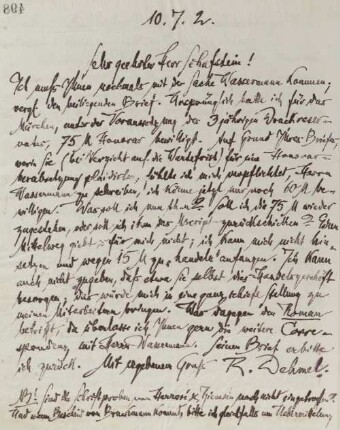 10.7.2.
Sehr geehrter Herr Schafstein!
Ich muß Ihnen nochmals mit der Sache Wassermann kommen,
vergl. den beiliegenden Brief. Ursprünglich hatte ich für das
Märchen, unter der Voraussetzung der 3jährigen
75 M Honorar bewilligt. Auf Grund Ihres Briefes,
worin Sie (bei Verzicht auf die Wartefrist) für eine Honorar-
herabsetzung plädirten, fühlte ich mich verpflichtet, Herrn
Wassermann zu schreiben, ich könne jetzt nur noch 60 M be-
willigen. Was soll ich nun thun? Soll ich die 75 M wieder
zugestehen, oder soll ich ihm das Mscript zurückschicken? Einen
Mittelweg giebt es für mich nicht; ich kann mich nicht hin-
setzen und wegen 15 M zu handeln anfangen. Ich kann
auch nicht zugeben, daß etwa Sie selbst dies Handelsgeschäft
besorgen; das würde mich in eine ganz schiefe Stellung zu
meinen Mitarbeitern bringen. Was dagegen den Roman
betrifft, da überlasse ich Ihnen gern die weitere Corre-
spondenz mit Herrn Wassermann. Seinen Brief erbitte
ich zurück. Mit ergebenem Gruß R. Dehmel.
NB! Sind die Schriftproben von & noch nicht eingetroffen?
Und wenn Bescheid von kommt, bitte ich gleichfalls um Uebermittelung